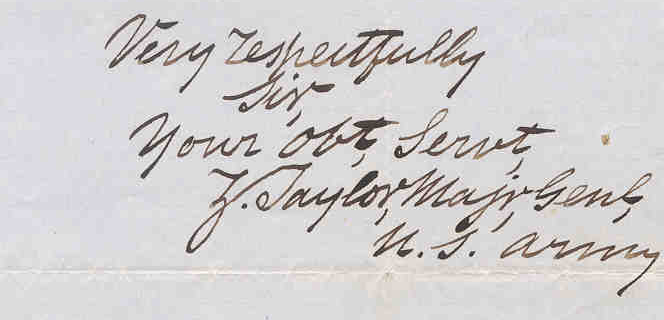 Very respectfully
Sir,
Your obt, Servt,
Z. Taylor, Majr, Genl,
U. S. army